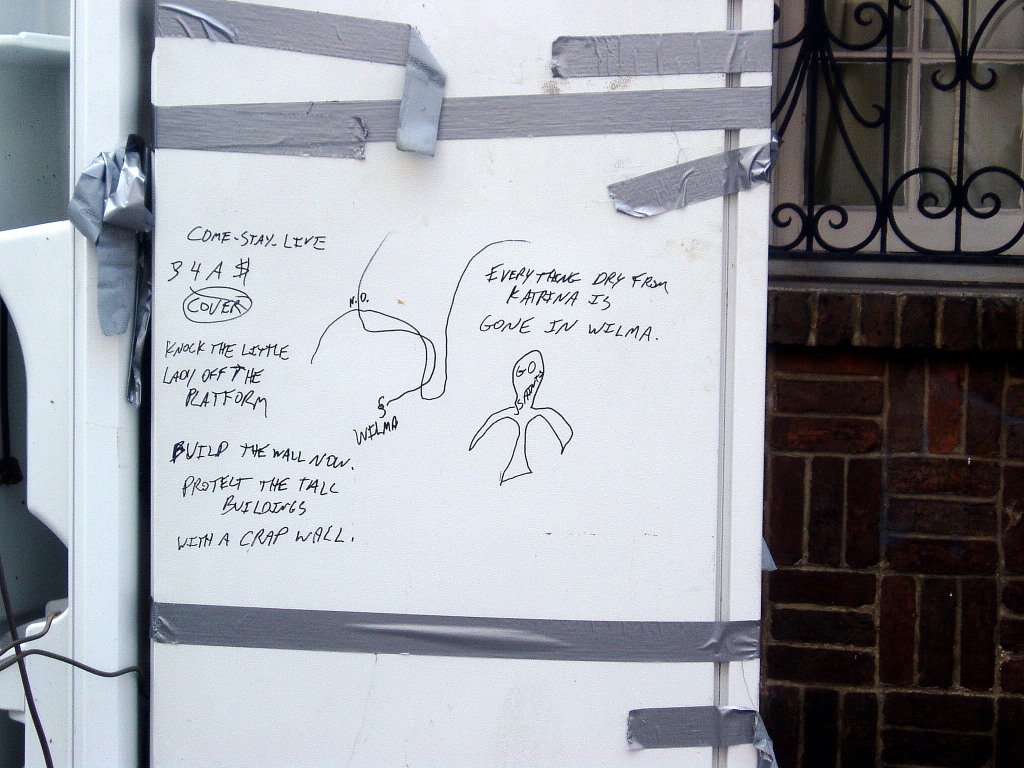 COME-STAY-LIVE
3 4 A $
COVER
KNOCK THE LITTLE
LADY OFF THE
PLATFORM
BUILD THE WALL NOW.
PROTECT THE TALL
BUILDINGS
WITH A CRAP WALL.
N.O.
WILMA
EVERYTHING DRY FROM
KATRINA IS
GONE IN WILMA.
GO
SAINTS